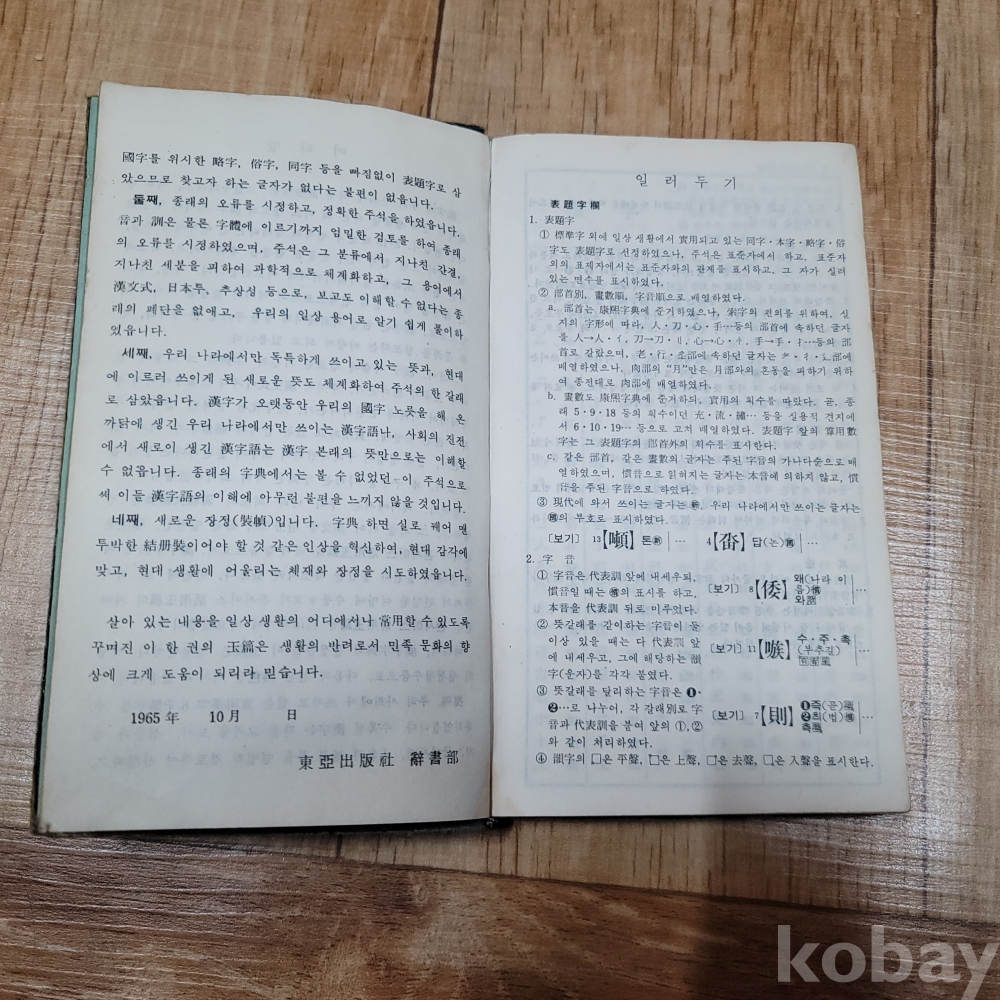 國字를 위시한 略字, 俗字, 同字 등을 빠짐없이 表題字로 삼
았으므로 찾고자 하는 글자가 없다는 불편이 없읍니다.
둘째, 종래의 오류를 시정하고, 정확한 주석을 하였읍니다.
음과 訓은 물론 字體에 이르기까지 엄밀한 검토를 하여 종래
의 오류를 시정하였으며, 주석은 그 분류에서 지나친 간결,
지나친 세분을 피하여 과학적으로 체계화하고, 그 용어에서
漢文式, 日本투, 추상성 등으로, 보고도 이해할 수 없다는 종
래의 폐단을 없애고, 우리의 일상 용어로 알기 쉽게 풀이하
였읍니다.
세째, 우리 나라에서만 독특하게 쓰이고 있는 뜻과, 현대
에 이르러 쓰이게 된 새로운 뜻도 체계화하여 주석의 한 갈래
로 삼았읍니다. 漢字가 오랫동안 우리의 國字 노릇을 해 온
까닭에 생긴 우리 나라에서만 쓰이는 漢字語나, 사회의 진전
에서 새로이 생긴 漢字語는 漢字 본래의 뜻만으로는 이해할
수 없읍니다. 종래의 字典에서는 볼 수 없었던 이 주석으로
써 이들 漢字語의 이해에 아무런 불편을 느끼지 않을 것입니다.
네째, 새로운 장정(裝幀)입니다. 字典 하면 실로 꿰어 맨
투박한 結册裝이어야 할 것 같은 인상을 혁신하여, 현대 감각에
맞고, 현대 생활에 어울리는 체재와 장정을 시도하였읍니다.
살아 있는 내용을 일상 생활의 어디에서나 常用할 수 있도록
꾸며진 이 한 권의 玉篇은 생활의 반려로서 민족 문화의 향
상에 크게 도움이 되리라 믿습니다.
1965年 10月 日
東亞出版社 辭書部
일러두기
表題字欄
1. 表題字
① 標準字 외에 일상 생활에서 實用되고 있는 同字·本字·略字·俗
字도 表題字로 선정하였으나, 주석은 표준자에서 하고, 표준자
외의 표제자에서는 표준자와의 관계를 표시하고, 그 자가 실려
있는 면수를 표시하였다.
② 部首別, 畫數順, 字音順으로 배열하였다.
a. 部首는 康熙字典에 준거하였으나, 索字의 편의를 위하여, 실
지의 字形에 따라, 人·刀·心·手…등의 部首에 속하던 글자
를 人→人·亻, 刀→刀·刂, 心→心·忄, 手→手·扌…등의 部
首로 갈랐으며, 老·行·辵部에 속하던 글자는 耂·彳·辶部에
배열하였으나, 肉部의 "月"만은 月部와의 혼동을 피하기 위하
여 종전대로 肉部에 배열하였다.
b. 畫數도 康熙字典에 준거하되, 實用의 획수를 따랐다. 곧, 종
래 5·9·18 등의 획수이던 充·流·繡… 등을 실용적 견지에
서 6·10·19… 등으로 고쳐 배열하였다. 表題字 앞의 算用數
字는 그 表題字의 部首外의 획수를 표시한다.
c. 같은 部首, 같은 畫數의 글자는 주된 字音의 가나다순으로 배
열하였으며, 慣音으로 읽혀지는 글자는 本音에 의하지 않고, 慣
音을 주된 字音으로 하였다.
③ 現代에 와서 쓰이는 글자는 新, 우리 나라에서만 쓰이는 글자는
國의 부호로 표시하였다.
[보기] 13【噸】톤新 … 4【畓】답(논)國 …
2. 字 音
① 字音은 代表訓 앞에 내세우되,
慣音일 때는 慣의 표시를 하고,
本音을 代表訓 뒤로 미루었다.
[보기] 8【倭】왜(나라 이름)慣 와 …
② 뜻갈래를 같이하는 字音이 둘
이상 있을 때는 다 代表訓 앞
에 내세우고, 그에 해당하는 韻
字(운자)를 각각 붙였다.
[보기] 11【嗾】수·주·촉 (부추길) …
③ 뜻갈래를 달리하는 字音은 ❶·
❷…로 나누어, 각 갈래別로 字
音과 代表訓을 붙여 앞의 ①, ②
와 같이 처리하였다.
[보기] 7【則】❶즉(곧) ❷칙(법)慣 측 …
④ 韻字의 □은 平聲, □은 上聲, □은 去聲, □은 入聲을 표시한다.
kobay